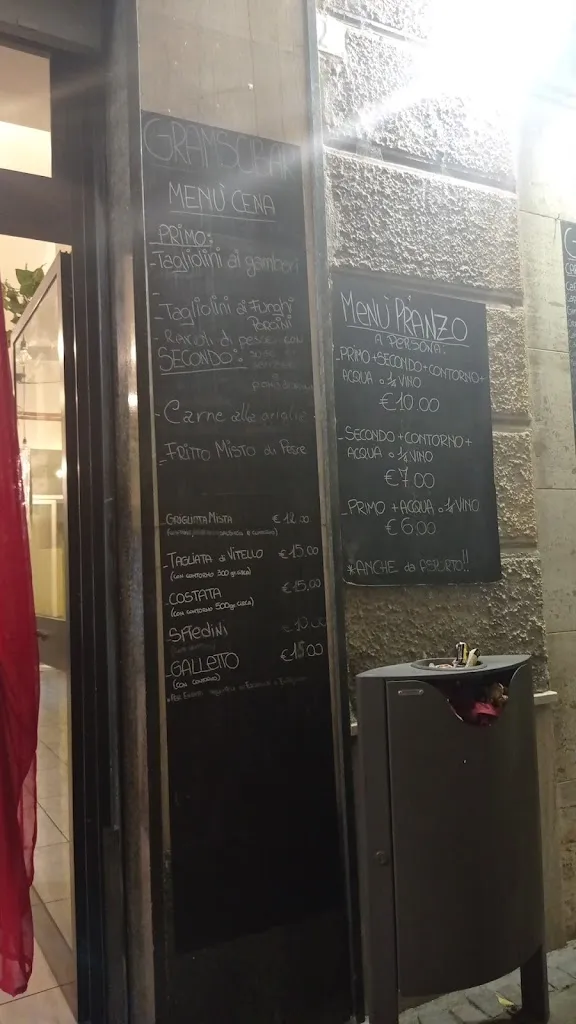 GRAMSCIBAR
MENÙ CENA
PRIMO:
-Tagliolini ai gamberi
-
-Tagliolini ai Funghi
Porcini
- Ravioli di pesce con
SECONDO:
- Carne alla griglia -
- FRITTO MISTO di Pesce
-
GRIGLIATA MISTA € 12.00
- TAGLIATA di VITELLO € 15.00
(CON CONTORNO 300 gr. CIRCA)
- COSTATA €15,00
(CON CONTORNO 500gr. CIRCA)
- SPIEDINI
- GALLETTO €15.00
(CON CONTORNO)
MENÙ PRANZO
A PERSONA:
- PRIMO+SECONDO+CONTORNO+
ACQUA o ¼ VINO
€10.00
- SECONDO+CONTORNO+
ACQUA o ¼ VINO
€7.00
- PRIMO + ACQUA o ¼ VINO
€6.00
*ANCHE da ASPORTO!!